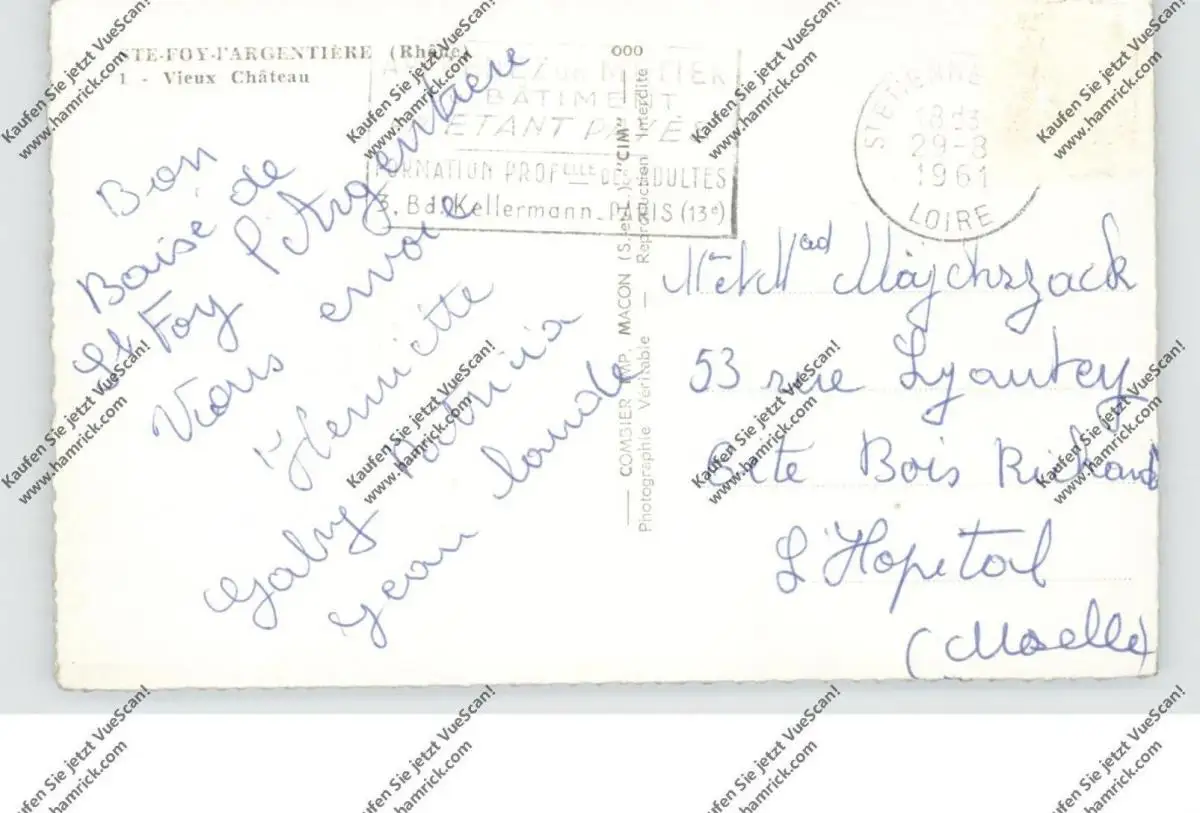 STE-FOY-l'ARGENTIÈRE (Rhône)
1. - Vieux Château
Bon
Baisé de
St Foy l'Argentiere
Vous envoie
Henriette
Gaby Patricia
Jean Claude
APPRENEZ un METIER
BÂTIMENT
ETANT PAYÉS
FORMATION PROFELLE DES ADULTES
3, Bd. Kellermann - PARIS (13e)
000
COMBIER IMP. MACON (S.-et-L.) "CIM"
Photographie Véritable — Reproduction Interdite
ST ETIENNE
18H
29-8
1961
LOIRE
Mr et Mad Majchszack
53 rue Lyautey
Cite Bois Richard
L'Hopital
(Moselle)
Kaufen Sie jetzt VueScan!
www.hamrick.com